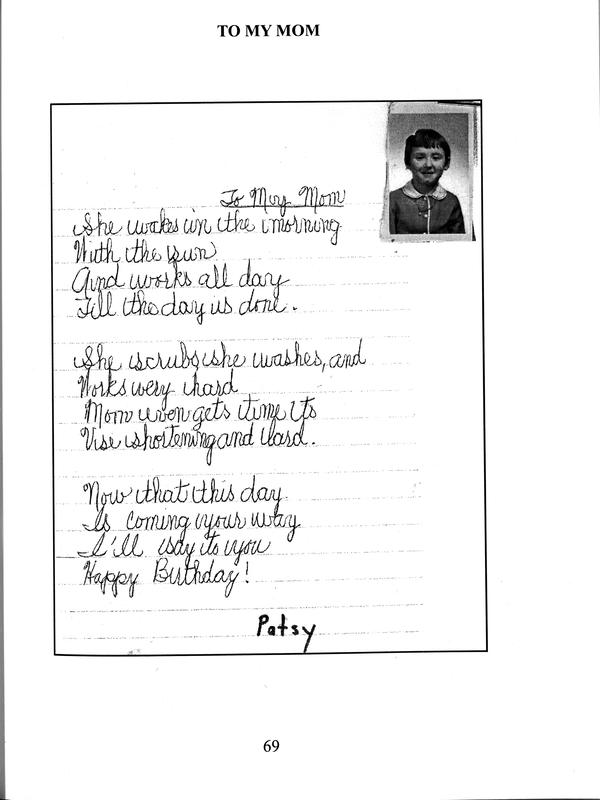 TO MY MOM
To My Mom
She wakes in the morning
With the sun
And works all day
Till the day is done.
She scrubs she washes, and
Works very hard
Mom even gets time to
Use shortening and lard.
Now that this day
Is coming your way
I'll say to you
Happy Birthday!
Patsy
69